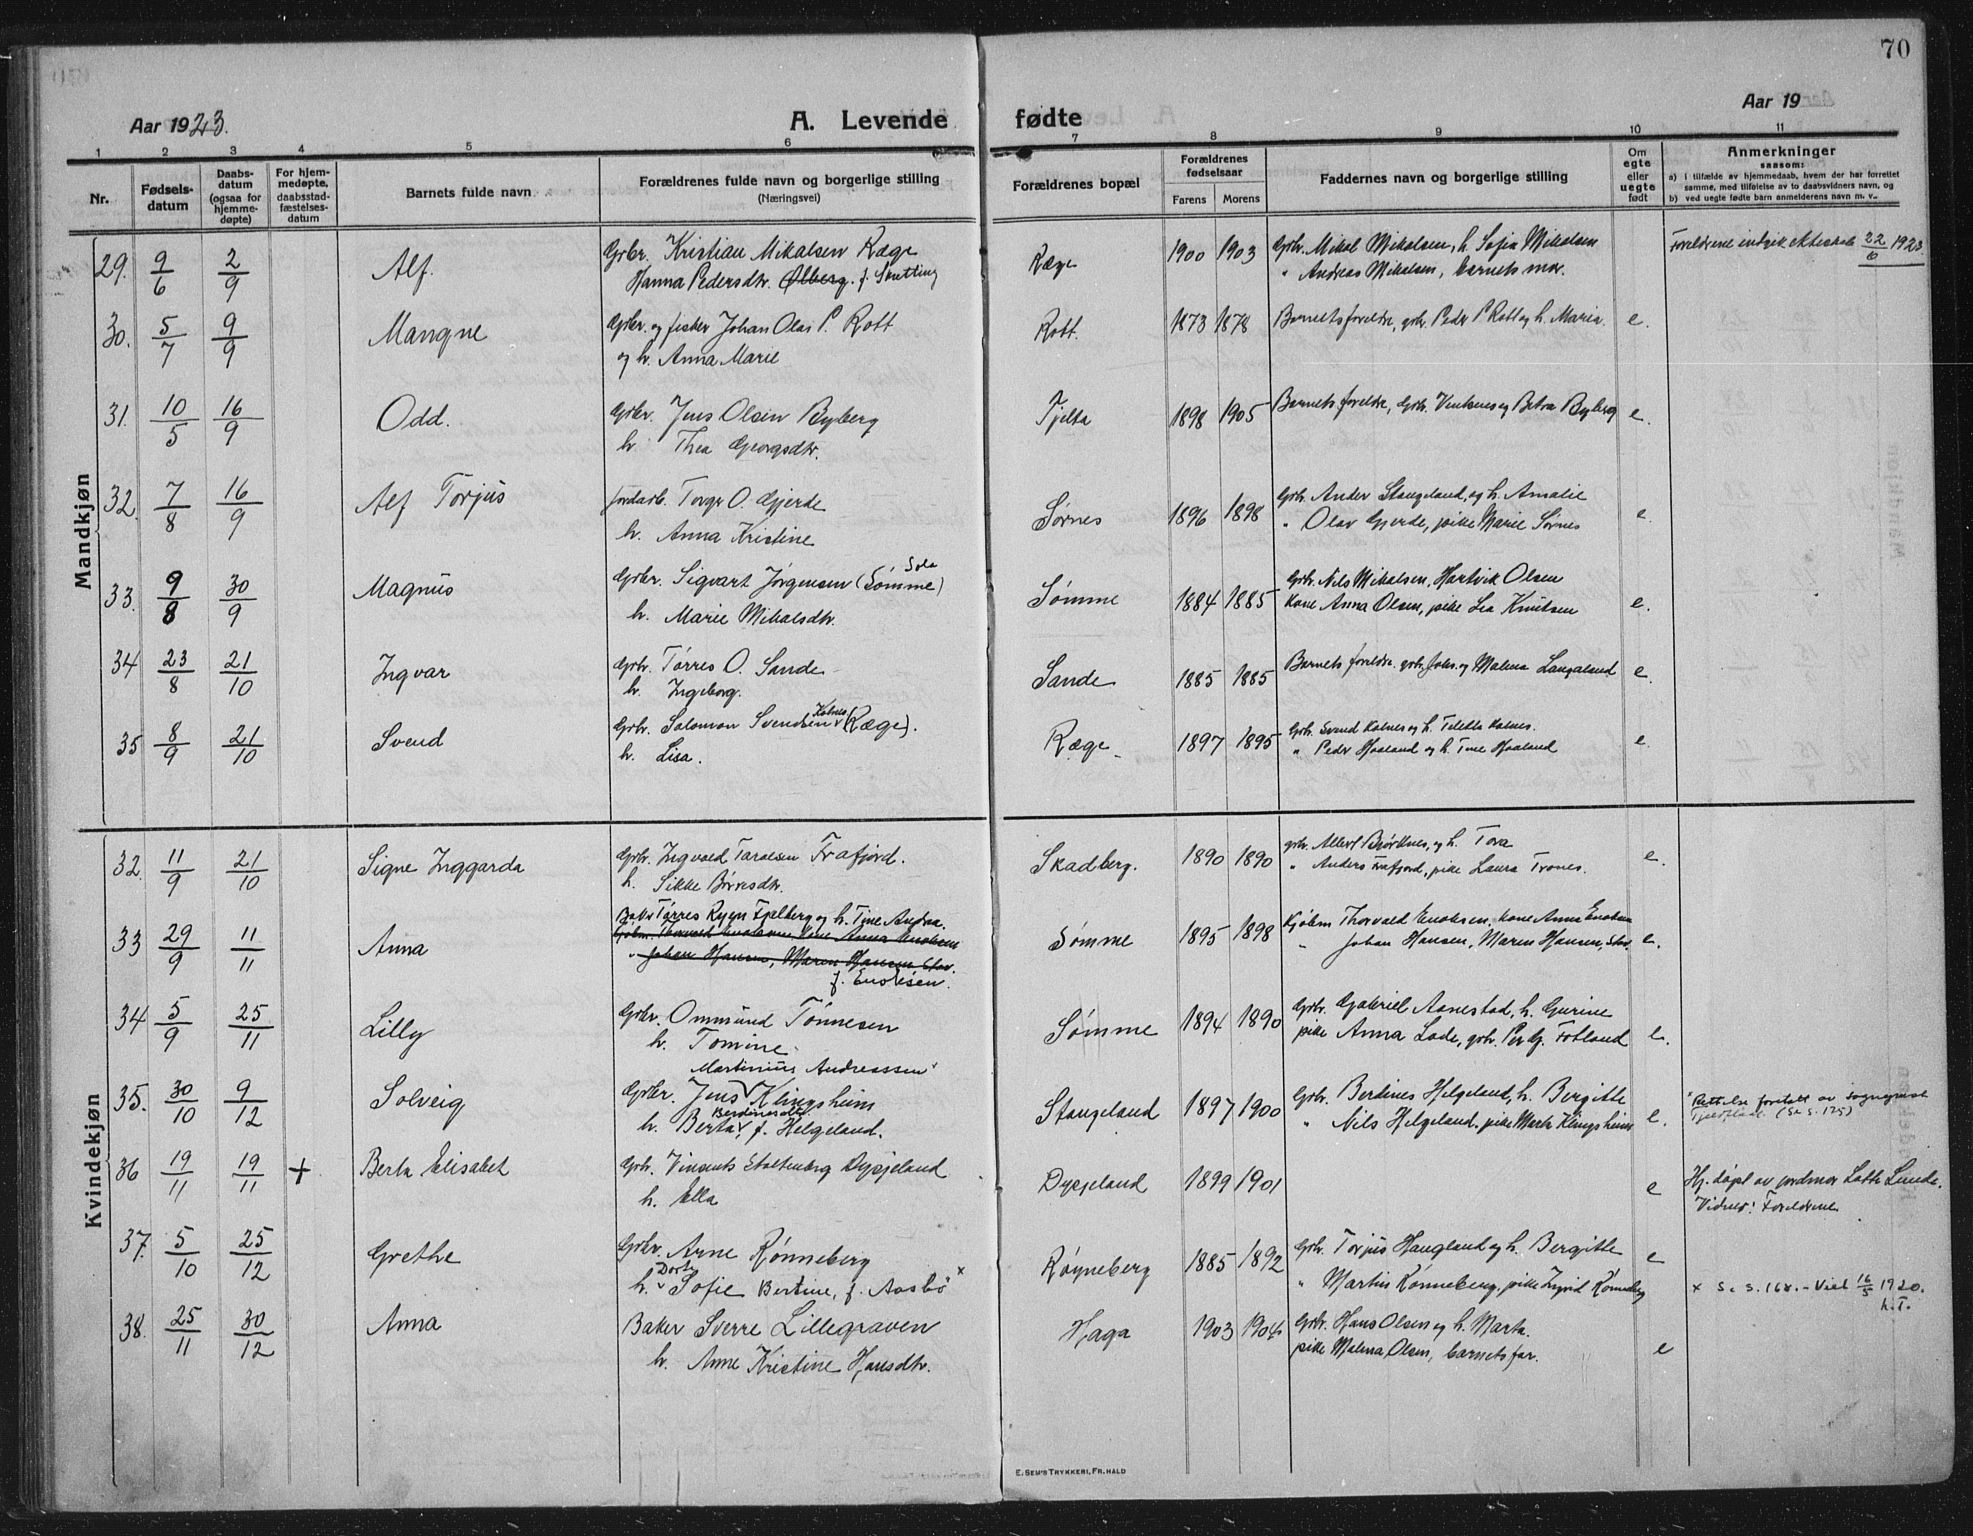 70
Aar 1923.
A. Levende
fødte
Aar 19
1 2 3 4 5 6 7 8 9 10 11
Nr.
Fødsels-
datum
Daabs-
datum
(ogsaa for
hjemme-
døpte)
For hjem-
medøpte,
daabsstad-
fæstelses-
datum
Barnets fulde navn
Forældrenes fulde navn og borgerlige stilling
(Næringsvei)
Forældrenes bopæl
Forældrenes
fødselsaar
Farens Morens
Faddernes navn og borgerlige stilling
Om
egte
eller
uegte
født
Anmerkninger
saasom:
a) i tilfælde av hjemmedaab, hvem der har forrettet
samme, med tilføielse av to daabsvidners navn, og
b) ved uegte fødte barn anmelderens navn m. v.
Mandkjøn
29. 9/6 2/9 Alf. Grbr. Kristian Mikalsen Ræge Ræge 1900 1903 Grbr. Mikal Mikalsen, h. Sofia Mikalsen Foreldrene indgik ekteskab 22/6 1923
Hanna Pedersdtr. Ølberg. f. Snutting " Andreas Mikalsen, barnets mor.
30. 5/7 9/9 Mangne Grbr. og fisker Johan Olai P. Rott Rott. 1873 1878 Barnets foreldre, grbr. Peder P. Rott og h. Maria. e.
og h. Anna Marie
31. 10/5 16/9 Odd. Grbr. Jens Olsen Byberg Tjelta 1898 1905 Barnets foreldre, Grbr. Ventsens og Betsa Byberg e.
h. Thea Georgsdtr.
32. 7/8 16/9 Alf Torjus Jordarb. Torger O. Gjerde Sørnes 1896 1898 Grbr. Ander Stangeland, og h. Amalie e.
h. Anna Kristine " Olav Gjerde, pike Marie Sørnes
33. 9/8 30/9 Magnus Grbr. Sigvart Jørgensen Sola (Sømme) Sømme 1884 1885 Grbr. Nils Mikalsen, Hartvik Olsen e.
h. Marie Mikalsdtr. Kone Anna Olsen, pike Lea Knutsen
34 23/8 21/10 Ingvar Grbr. Tørres O. Sande Sande 1885 1885 Barnets foreldre. grbr. Johs. og Malena Langaland e.
h. Ingeborg.
35 8/9 21/10 Svend Grbr. Salomon Svendsen Kolnes (Ræge). Ræge 1897 1895 Grbr. Svend Kolnes og h. Teletta Kolnes. e.
h. Lisa. " Peder Haaland og h. Tine Haaland
Kvindekjøn
32. 11/9 21/10 Signe Inggarda Grbr. Ingvald Taralsen Trafjord. Skadberg. 1890 1890 grbr. Albert Bjørknes, og h. Tora e.
h. Sikke Børresdtr. " Anders Trafjord, pike Laura Trones.
33 29/9 11/11 Anna Baker Tørres Rygn Fjelberg og h. Tine Andrea. Sømme 1895 1898 Kjøbm Thorvald Enoksen, kone Anna Enoksen e.
Kjøbm. Thorvald Enoksen, Kone Anna Enoksen " Johan Hansen, Maren Hansen, Stav.
" Johan Hansen, Maren Hansen Stav.
f. Enoksen.
34 5/9 25/11 Lilly Grbr. Ommund Tønnesen Sømme 1894 1890 Grbr. Gabriel Aanestad, h. Gurine e.
h. Tomine. pike Anna Lode, grbr. Per G. Fotland
35. 30/10 9/12 Solveig Grbr. Jens Martinius Andreassen Klingsheim Stangeland 1897 1900 Grbr. Berdines Helgeland, h. Bergitte e.
h. Berta Berdinesdtr., f. Helgeland. " Nils Helgeland. pike Marta Klingsheim
Rettelse foretatt av sogneprest
(Se s. 175)
36 19/11 19/11 + Berta Elisabet Grbr. Vinsents Stoltenberg Dysjeland Dysjeland 1899 1901 e Hj. døpt av jordmor Lotte Lunde.
h. Ella Vidner: Foreldrene
37. 5/10 25/12 Grethe Grbr. Arne Rønneberg Røyneberg 1885 1892 Grbr. Torjus Haugland og h. Bergitte e
h. Dorte Sofie Bertine, f. Aasbø x " Martin Rønneberg, pike Ingrid Rønneberg x Se s. 168. - Viet 16/5 1920.
h.T.
38. 25/11 30/12 Anna Baker Sverre Lillegraven Haga 1903 1904 Grbr. Hans Olsen og h. Marta. e
h. Anne Kristine Hansdtr. pike Malena Olsen, barnets far.
E. SEM'S TRYKKERI, FR. HALD